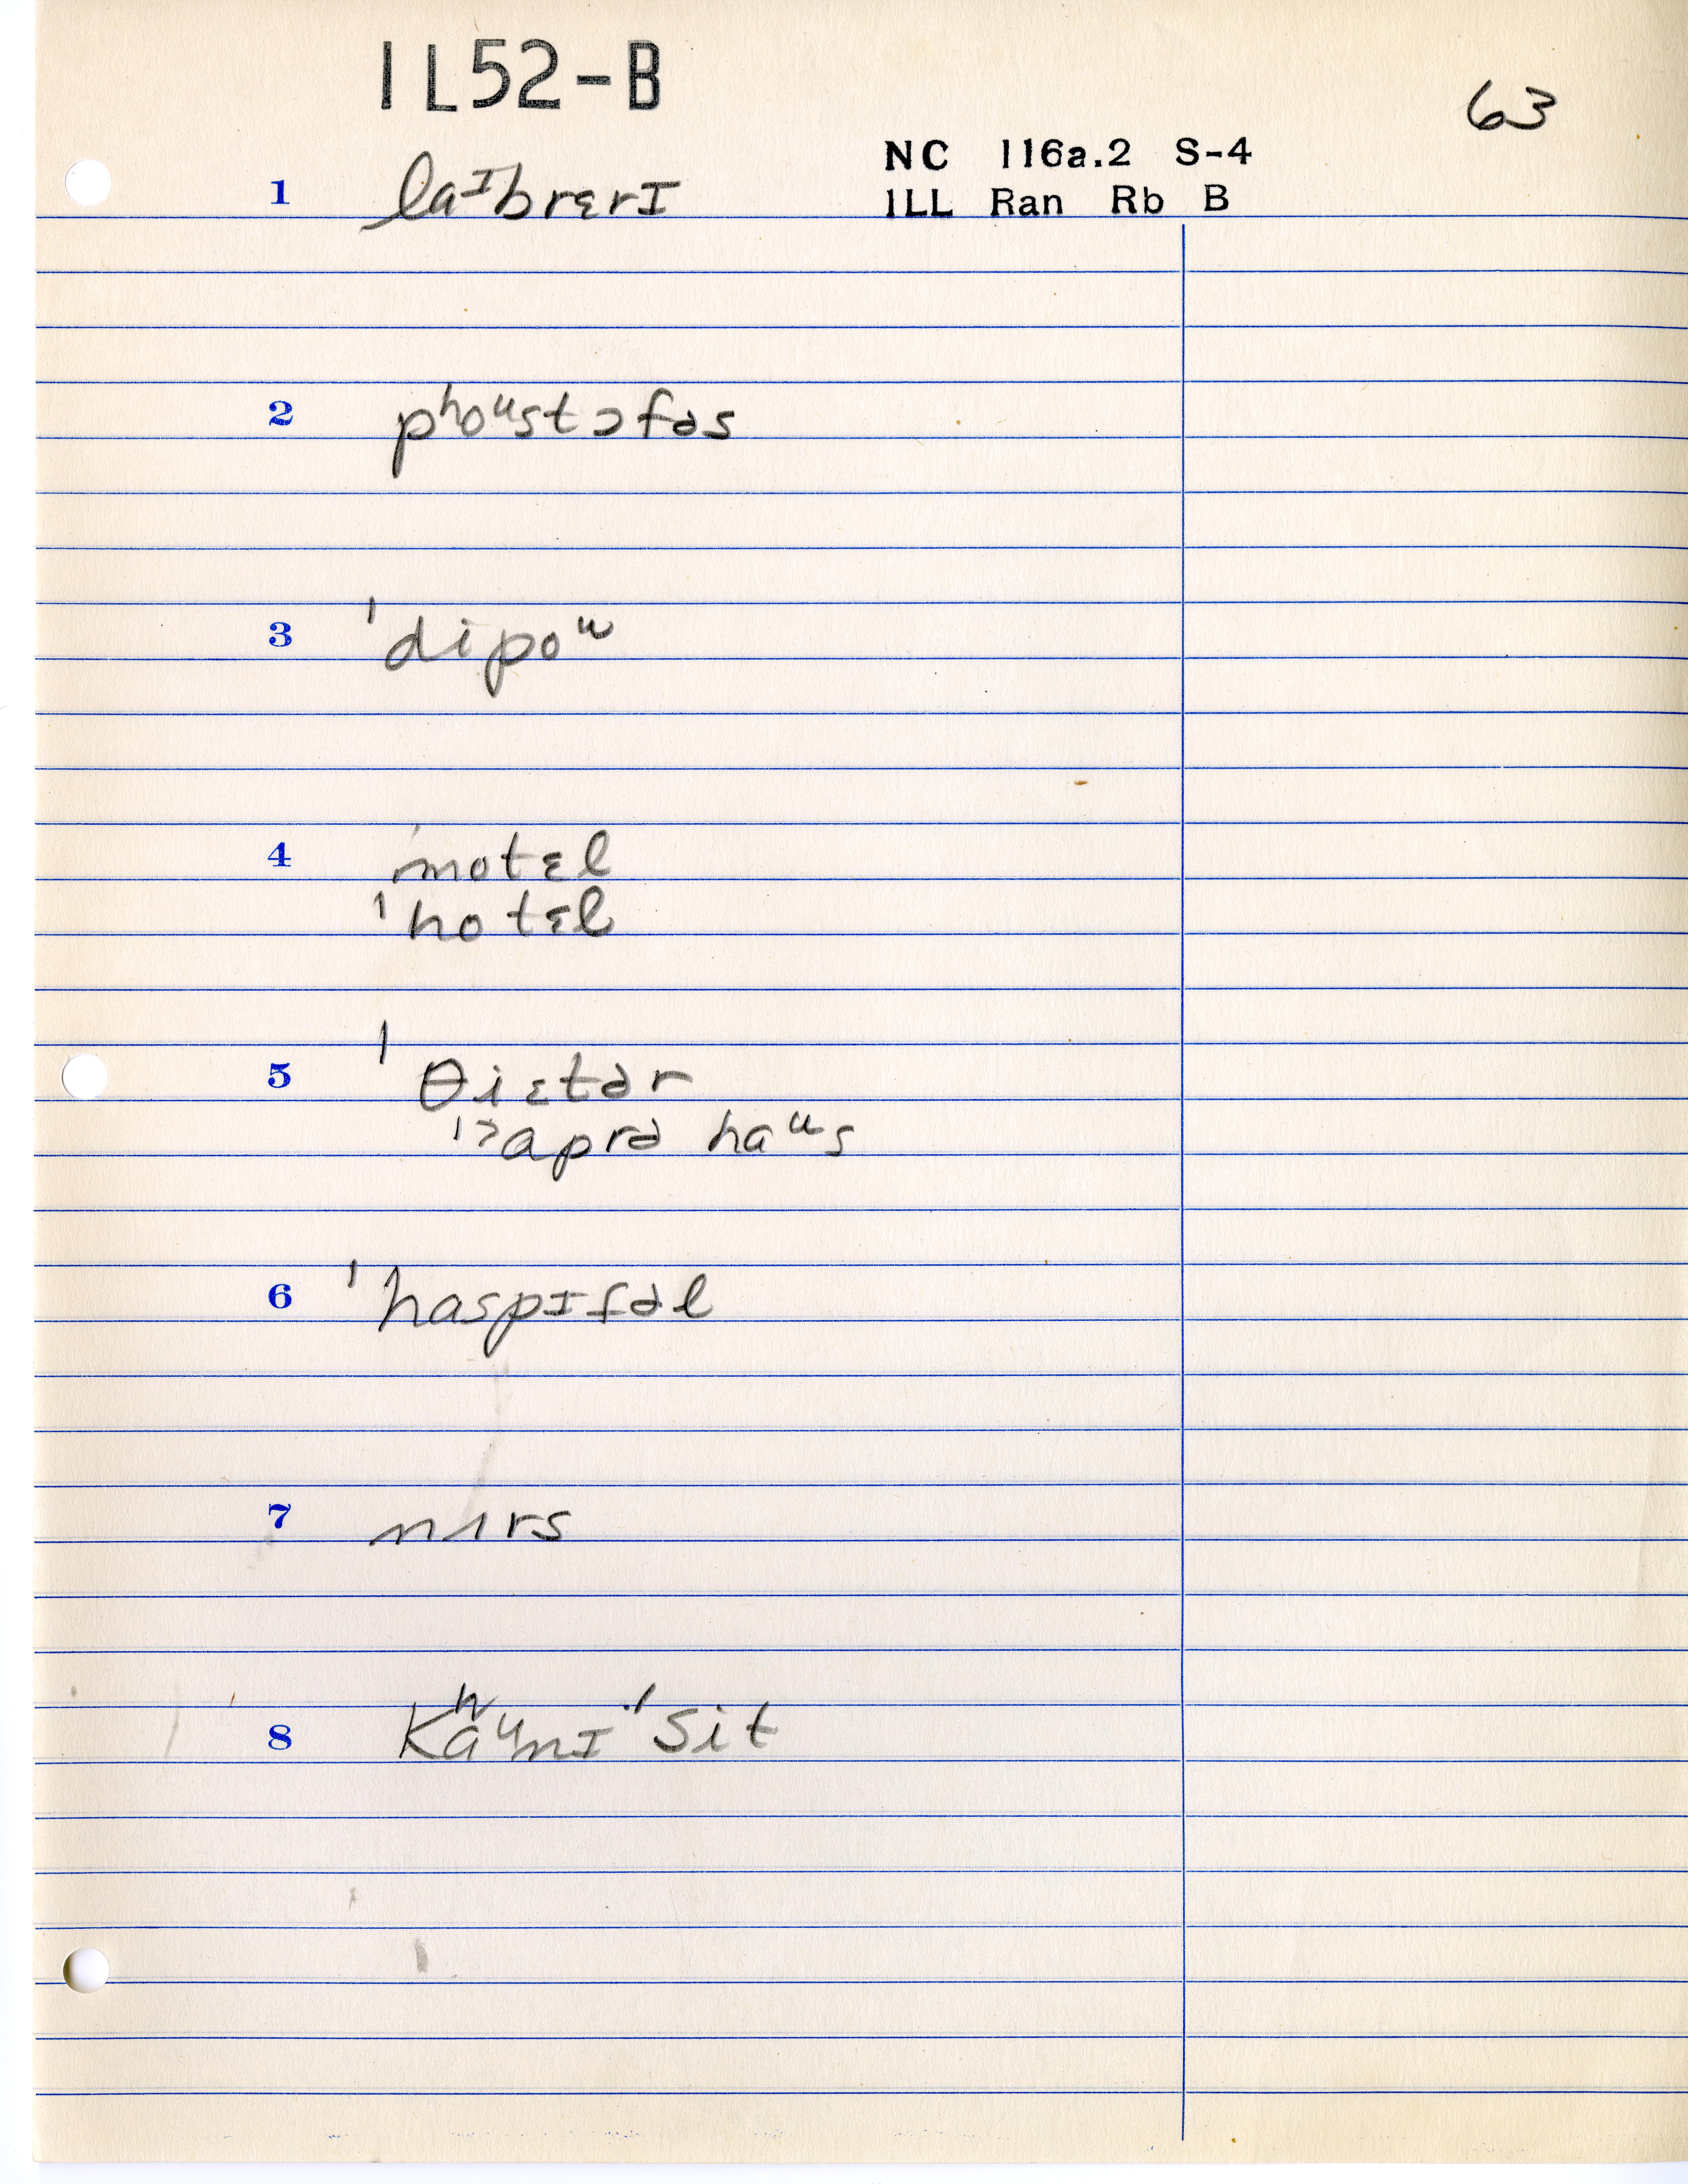 IL52-B
63
NC 116a.2 S-4
1 laᴵbrɛrɪ
ILL Ran Rb B
2 pʰoᵘstɔfəs
3 ˈdipoᵘ
4 ˈmotɛl
ˈhotɛl
5 ˈθiɛtər
ˈʔaprə haᵘs
6 ˈhaspɪtəl
7 nɜrs
8 Kʰaᵘnɪ ˈsit